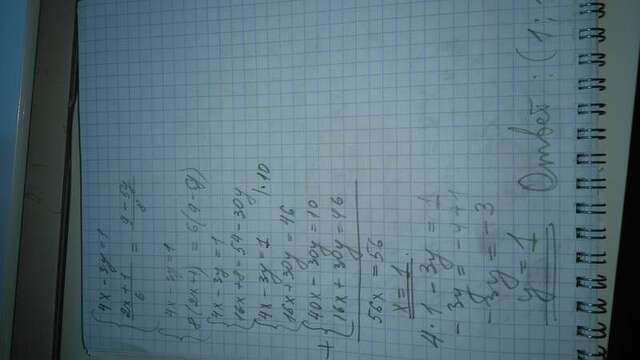 {4x - 3y = 1
{(2x + 1)/6 = (9 - 5y)/8
{4x - 3y = 1
{8(2x+1) = 6(9-5y)
{4x - 3y = 1
{16x + 8 = 54 - 30y
{4x - 3y = 1 /·10
{16x + 30y = 46
+ {40x - 30y = 10
{16x + 30y = 46
56x = 56
x = 1
4·1 - 3y = 1
-3y = -4+1
-3y = -3
y = 1
Ответ: (1;